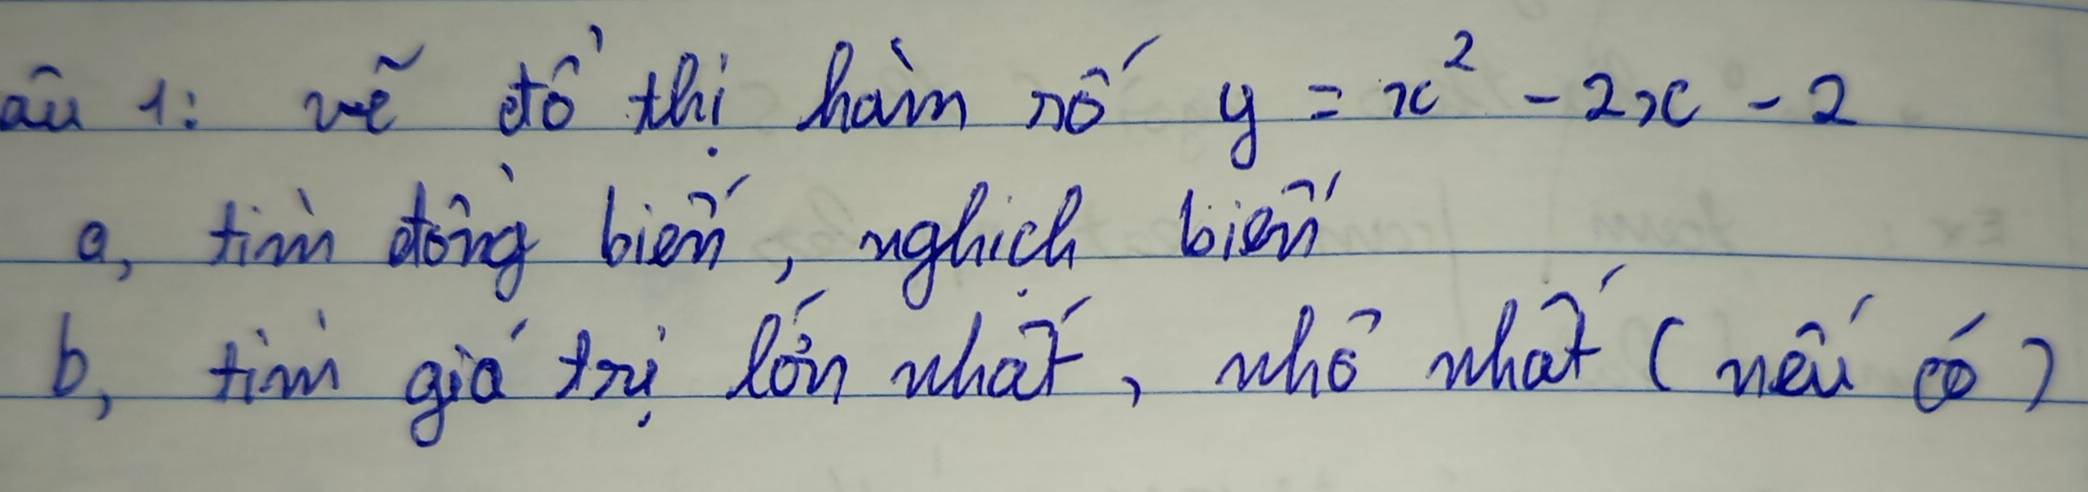 âu 1: vẽ đồ thị hàm số y = x² - 2x - 2
a, tìm đồng biến, nghịch biến
b, tìm giá trị lớn nhất, nhỏ nhất (nếu có)